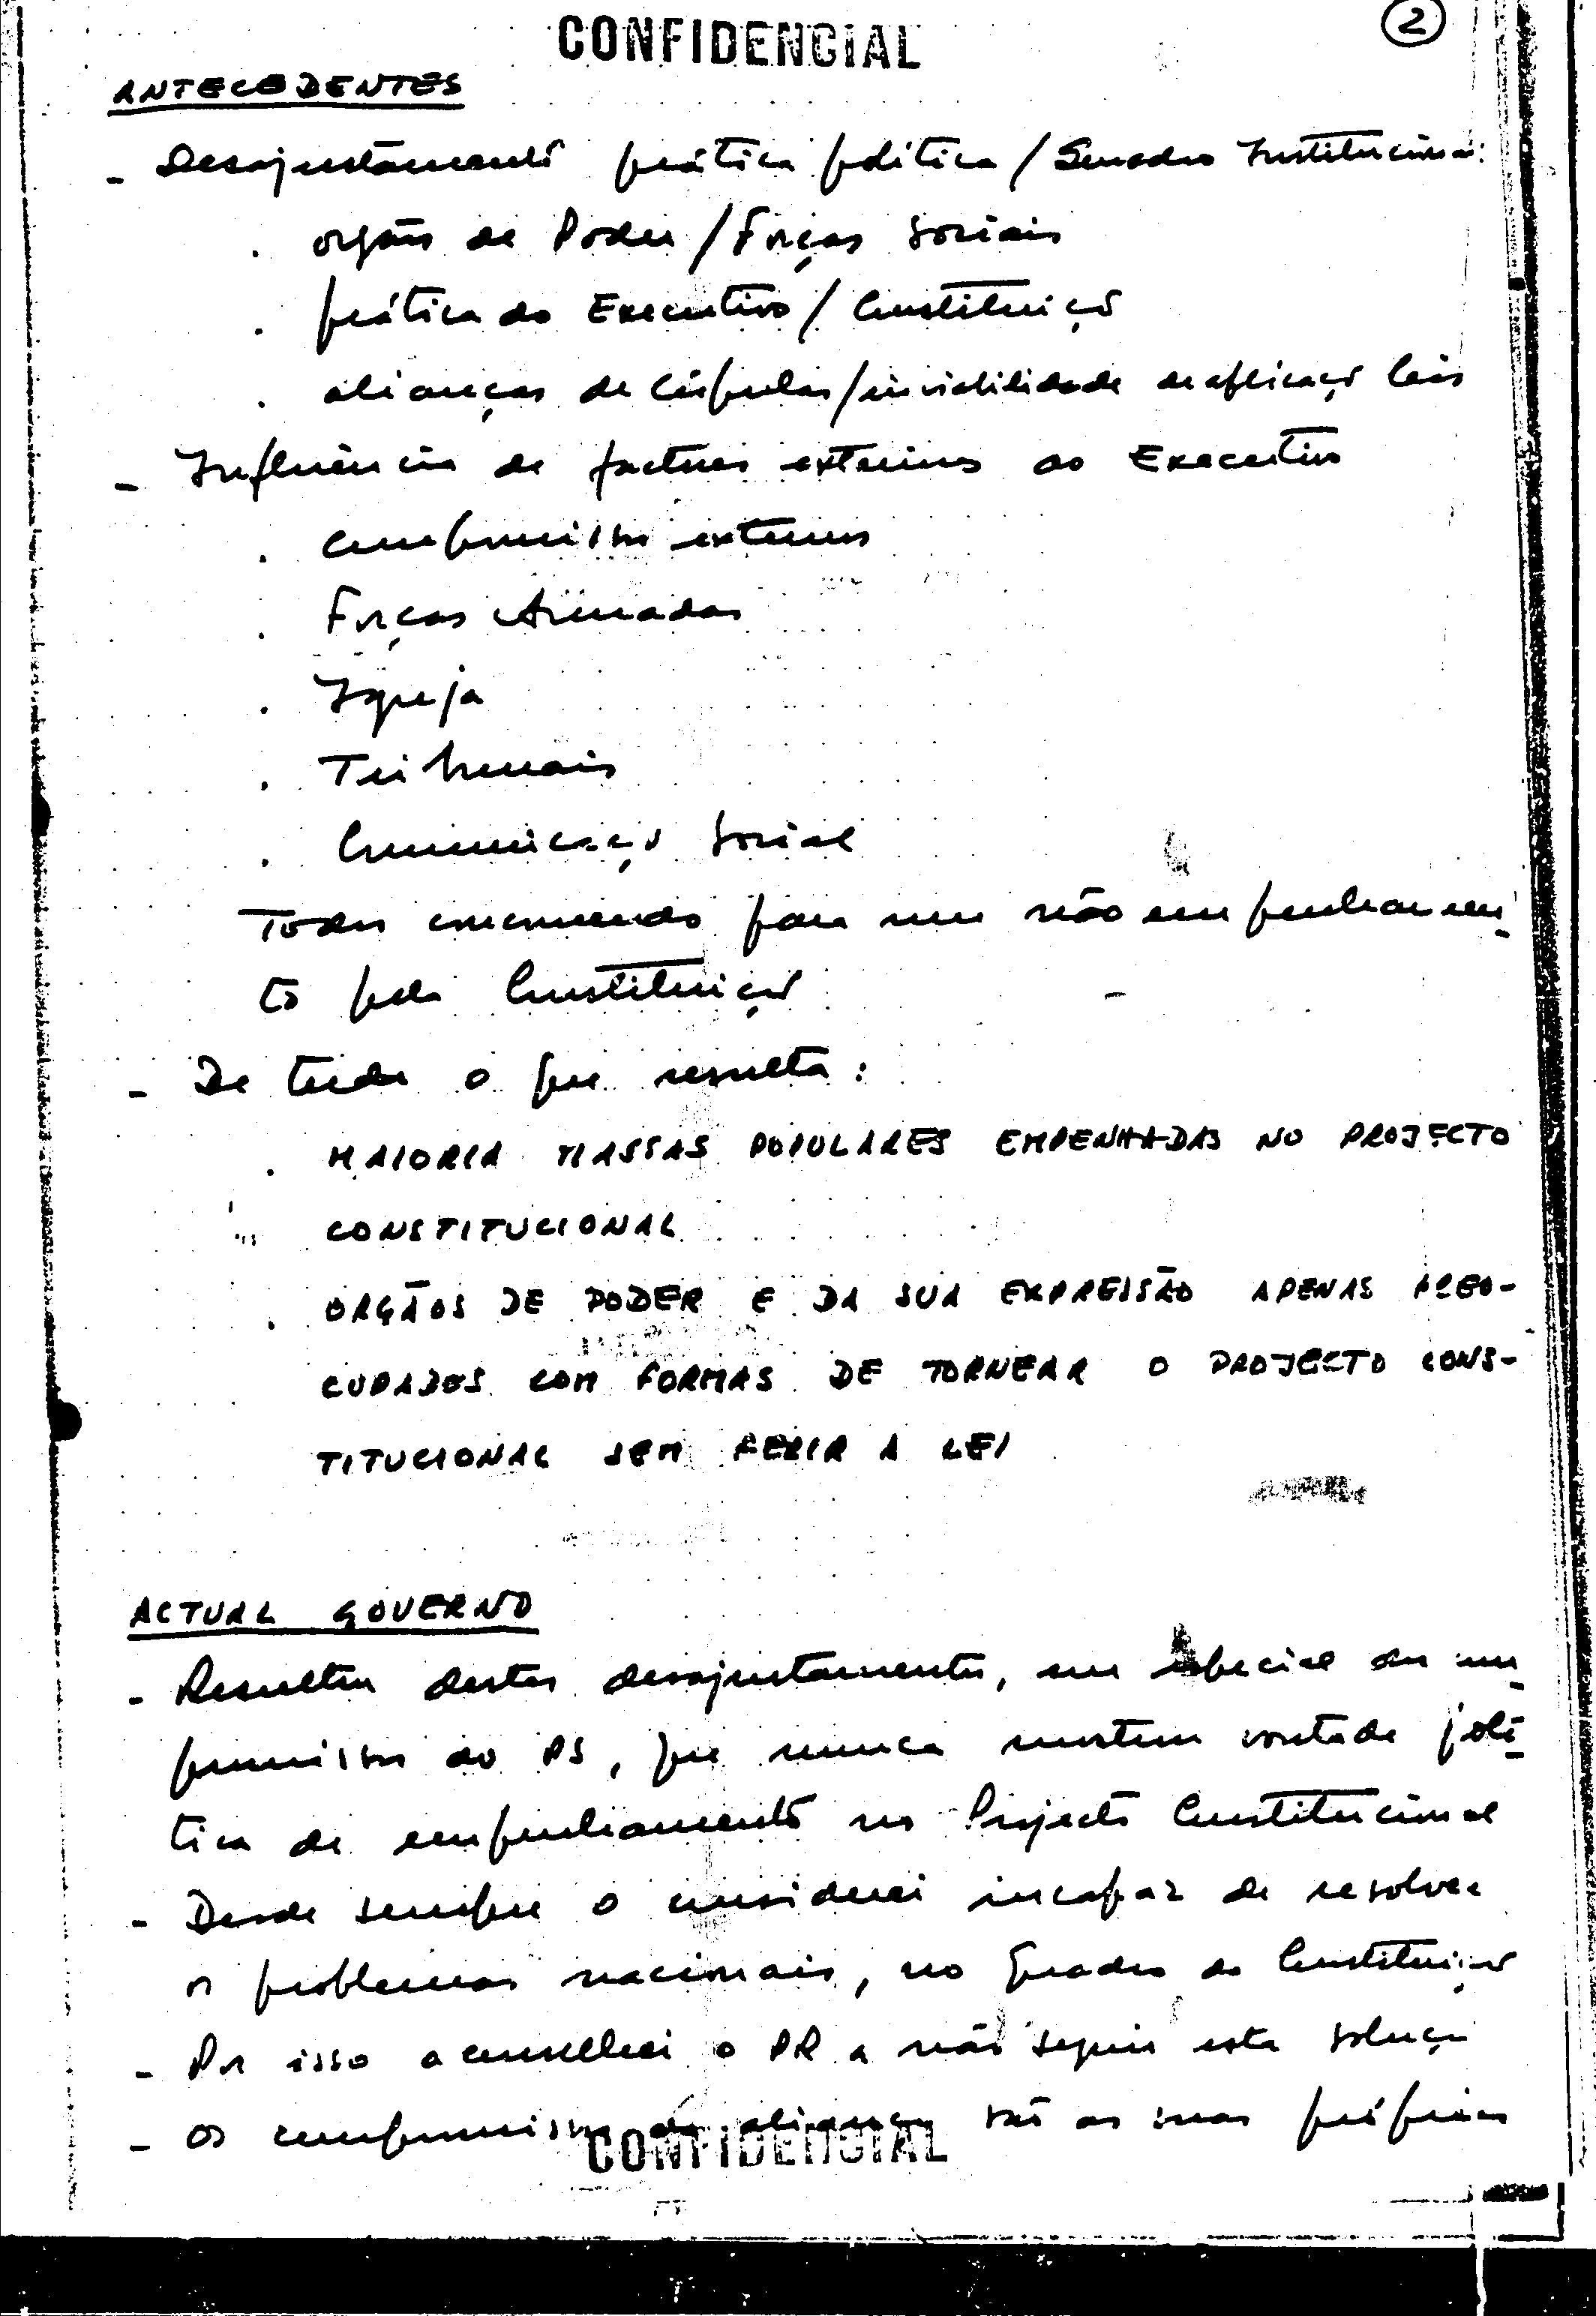 CONFIDENCIAL
2
ANTECEDENTES
- Desajustamento prática política / Quadro Institucional:
. orgãos de Poder / Forças Sociais
. prática do Executivo / Constituição
. alianças de cúpulas / inviabilidade de aplicação leis
- Influência de factores externos ao Executivo
. compromissos externos
. Forças Armadas
. Igreja
. Tribunais
. Comunicação Social
Todos concorrendo para um não empenhamen-
to pela Constituição
- De tudo o que resulta:
. MAIORIA MASSAS POPULARES EMPENHADAS NO PROJECTO
CONSTITUCIONAL
. ORGÃOS DE PODER E DA SUA EXPRESSÃO APENAS PREO-
CUPADOS COM FORMAS DE TORNEAR O PROJECTO CONS-
TITUCIONAL SEM FERIR A LEI
ACTUAL GOVERNO
- Resultou destes desajustamentos, em especial do
do PS, que nunca mostrou vontade polí-
tica de empenhamento no Projecto Constitucional
- Desde sempre o considerei incapaz de resolver
os problemas nacionais, no quadro da Constituição
- Por isso aconselhei o PR a não seguir esta solução
- Os compromissos da aliança são as suas próprias
CONFIDENCIAL